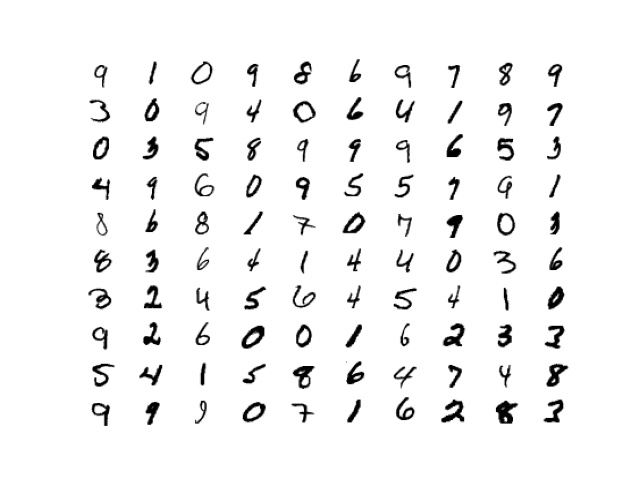 9 1 0 9 8 6 9 7 8 9
3 0 9 4 0 6 4 1 9 7
0 3 5 8 9 9 9 6 5 3
4 9 6 0 9 5 5 7 9 1
8 6 8 1 7 0 7 9 0 3
8 3 6 4 1 4 4 0 3 6
3 2 4 5 6 4 5 4 1 0
9 2 6 0 0 1 6 2 3 3
5 4 1 5 8 6 4 7 4 8
9 9 9 0 7 1 6 2 8 3